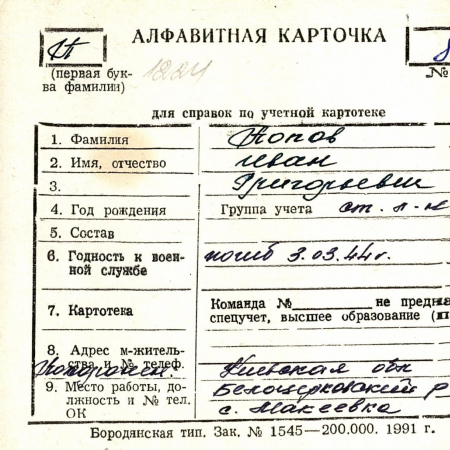 П
АЛФАВИТНАЯ КАРТОЧКА
8
(первая бук-
ва фамилии)
1224
№
для справок по учетной картотеке
1. Фамилия Попов
2. Имя, отчество Иван
3. Григорьевич
4. Год рождения Группа учета ст. л-т
5. Состав
6. Годность к воен-
ной службе погиб 3.03.44г.
7. Картотека
Команда № не предна
спецучет, высшее образование (
8. Адрес м-житель-
ства и № телеф. Киевская обл
Похоронен:
9. Место работы, до- Белоцерковский р
лжность и № тел.
ОК с. Макеевка
Бородянская тип. Зак. № 1545—200.000. 1991 г.